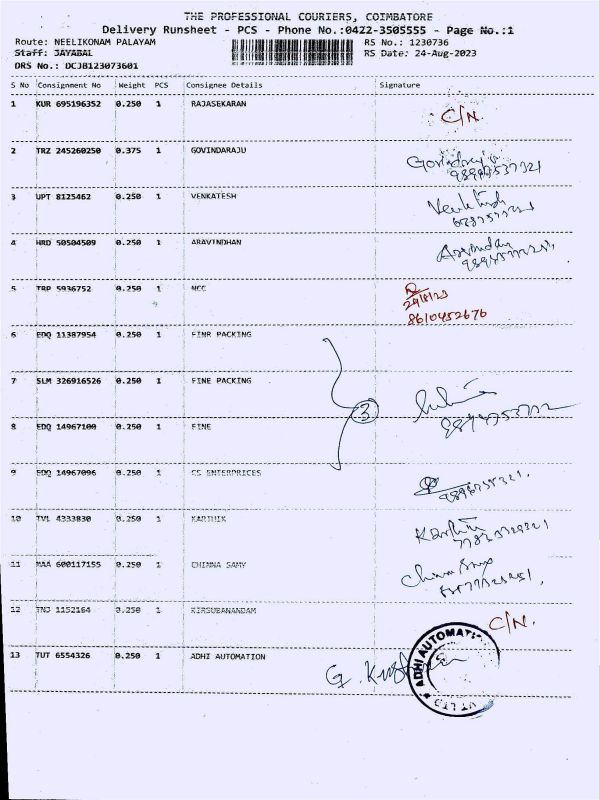 THE PROFESSIONAL COURIERS, COIMBATORE
Delivery Runsheet - PCS - Phone No.:0422-3505555 - Page No.:1
Route: NEELIKONAM PALAYAM RS No.: 1230736
Staff: JAYABAL RS Date: 24-Aug-2023
DRS No.: DCJB123073601
S No Consignment No Weight PCS Consignee Details Signature
1 KUR 695196352 0.250 1 RAJASEKARAN C/N.
2 TRZ 245260250 0.375 1 GOVINDARAJU Govindraju
3 UPT 8125462 0.250 1 VENKATESH Venkatesh
4 HRD 50504509 0.250 1 ARAVINDHAN Arvindan
5 TRP 5936752 0.250 1 NCC
24/8/23
8610452676
6 EDQ 11387954 0.250 1 FINR PACKING
7 SLM 326916526 0.250 1 FINE PACKING
3
8 EDQ 14967100 0.250 1 FINE
9 EDQ 14967096 0.250 1 CS ENTERPRICES
10 TVL 4333830 0.250 1 KARTHIK Karthi
11 MAA 600117155 0.250 1 CHINNA SAMY
12 TNJ 1152164 0.250 1 KIRSUBANANDAM C/N.
13 TUT 6554326 0.250 1 ADHI AUTOMATION G.
ADHI AUTOMATI